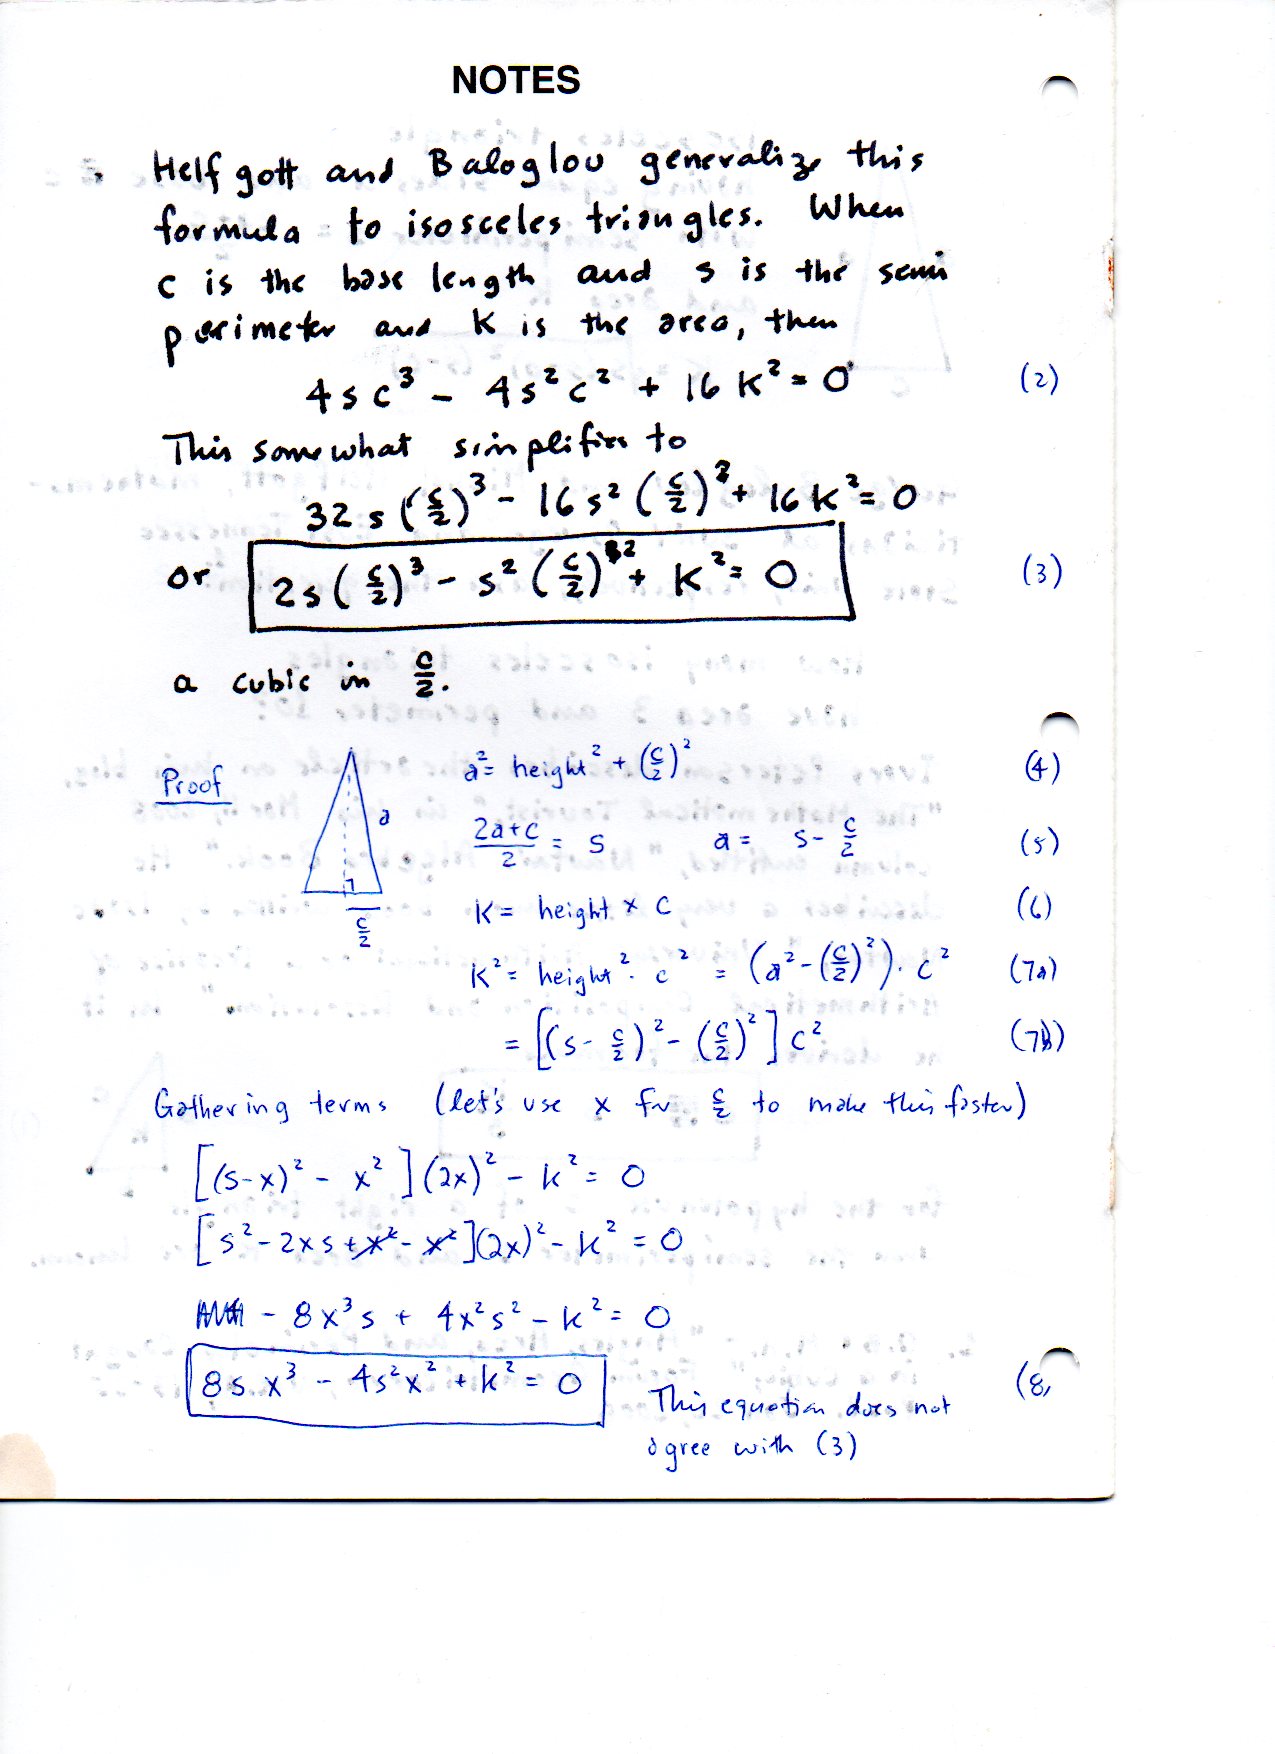 NOTES
Helfgott and Baloglou generalize this
formula to isosceles triangles. When
c is the base length and s is the semi
perimeter and K is the area, then
4sc³ - 4s²c² + 16K² = 0 (2)
This somewhat simplifies to
32s(c/2)³ - 16s²(c/2)² + 16K² = 0
or 2s(c/2)³ - s²(c/2)² + K² = 0 (3)
a cubic in c/2.
Proof a a² = height² + (c/2)² (4)
(2a+c)/2 = s a = s - c/2 (5)
c/2 K = height × c (6)
K² = height² · c² = (a² - (c/2)²) · c² (7a)
= [(s - c/2)² - (c/2)²] c² (7b)
Gathering terms (let's use x for c/2 to make this faster)
[(s-x)² - x²](2x)² - K² = 0
[s² - 2xs + x² - x²](2x)² - K² = 0
- 8x³s + 4x²s² - K² = 0
8sx³ - 4s²x² + K² = 0 (8)
This equation does not
agree with (3)